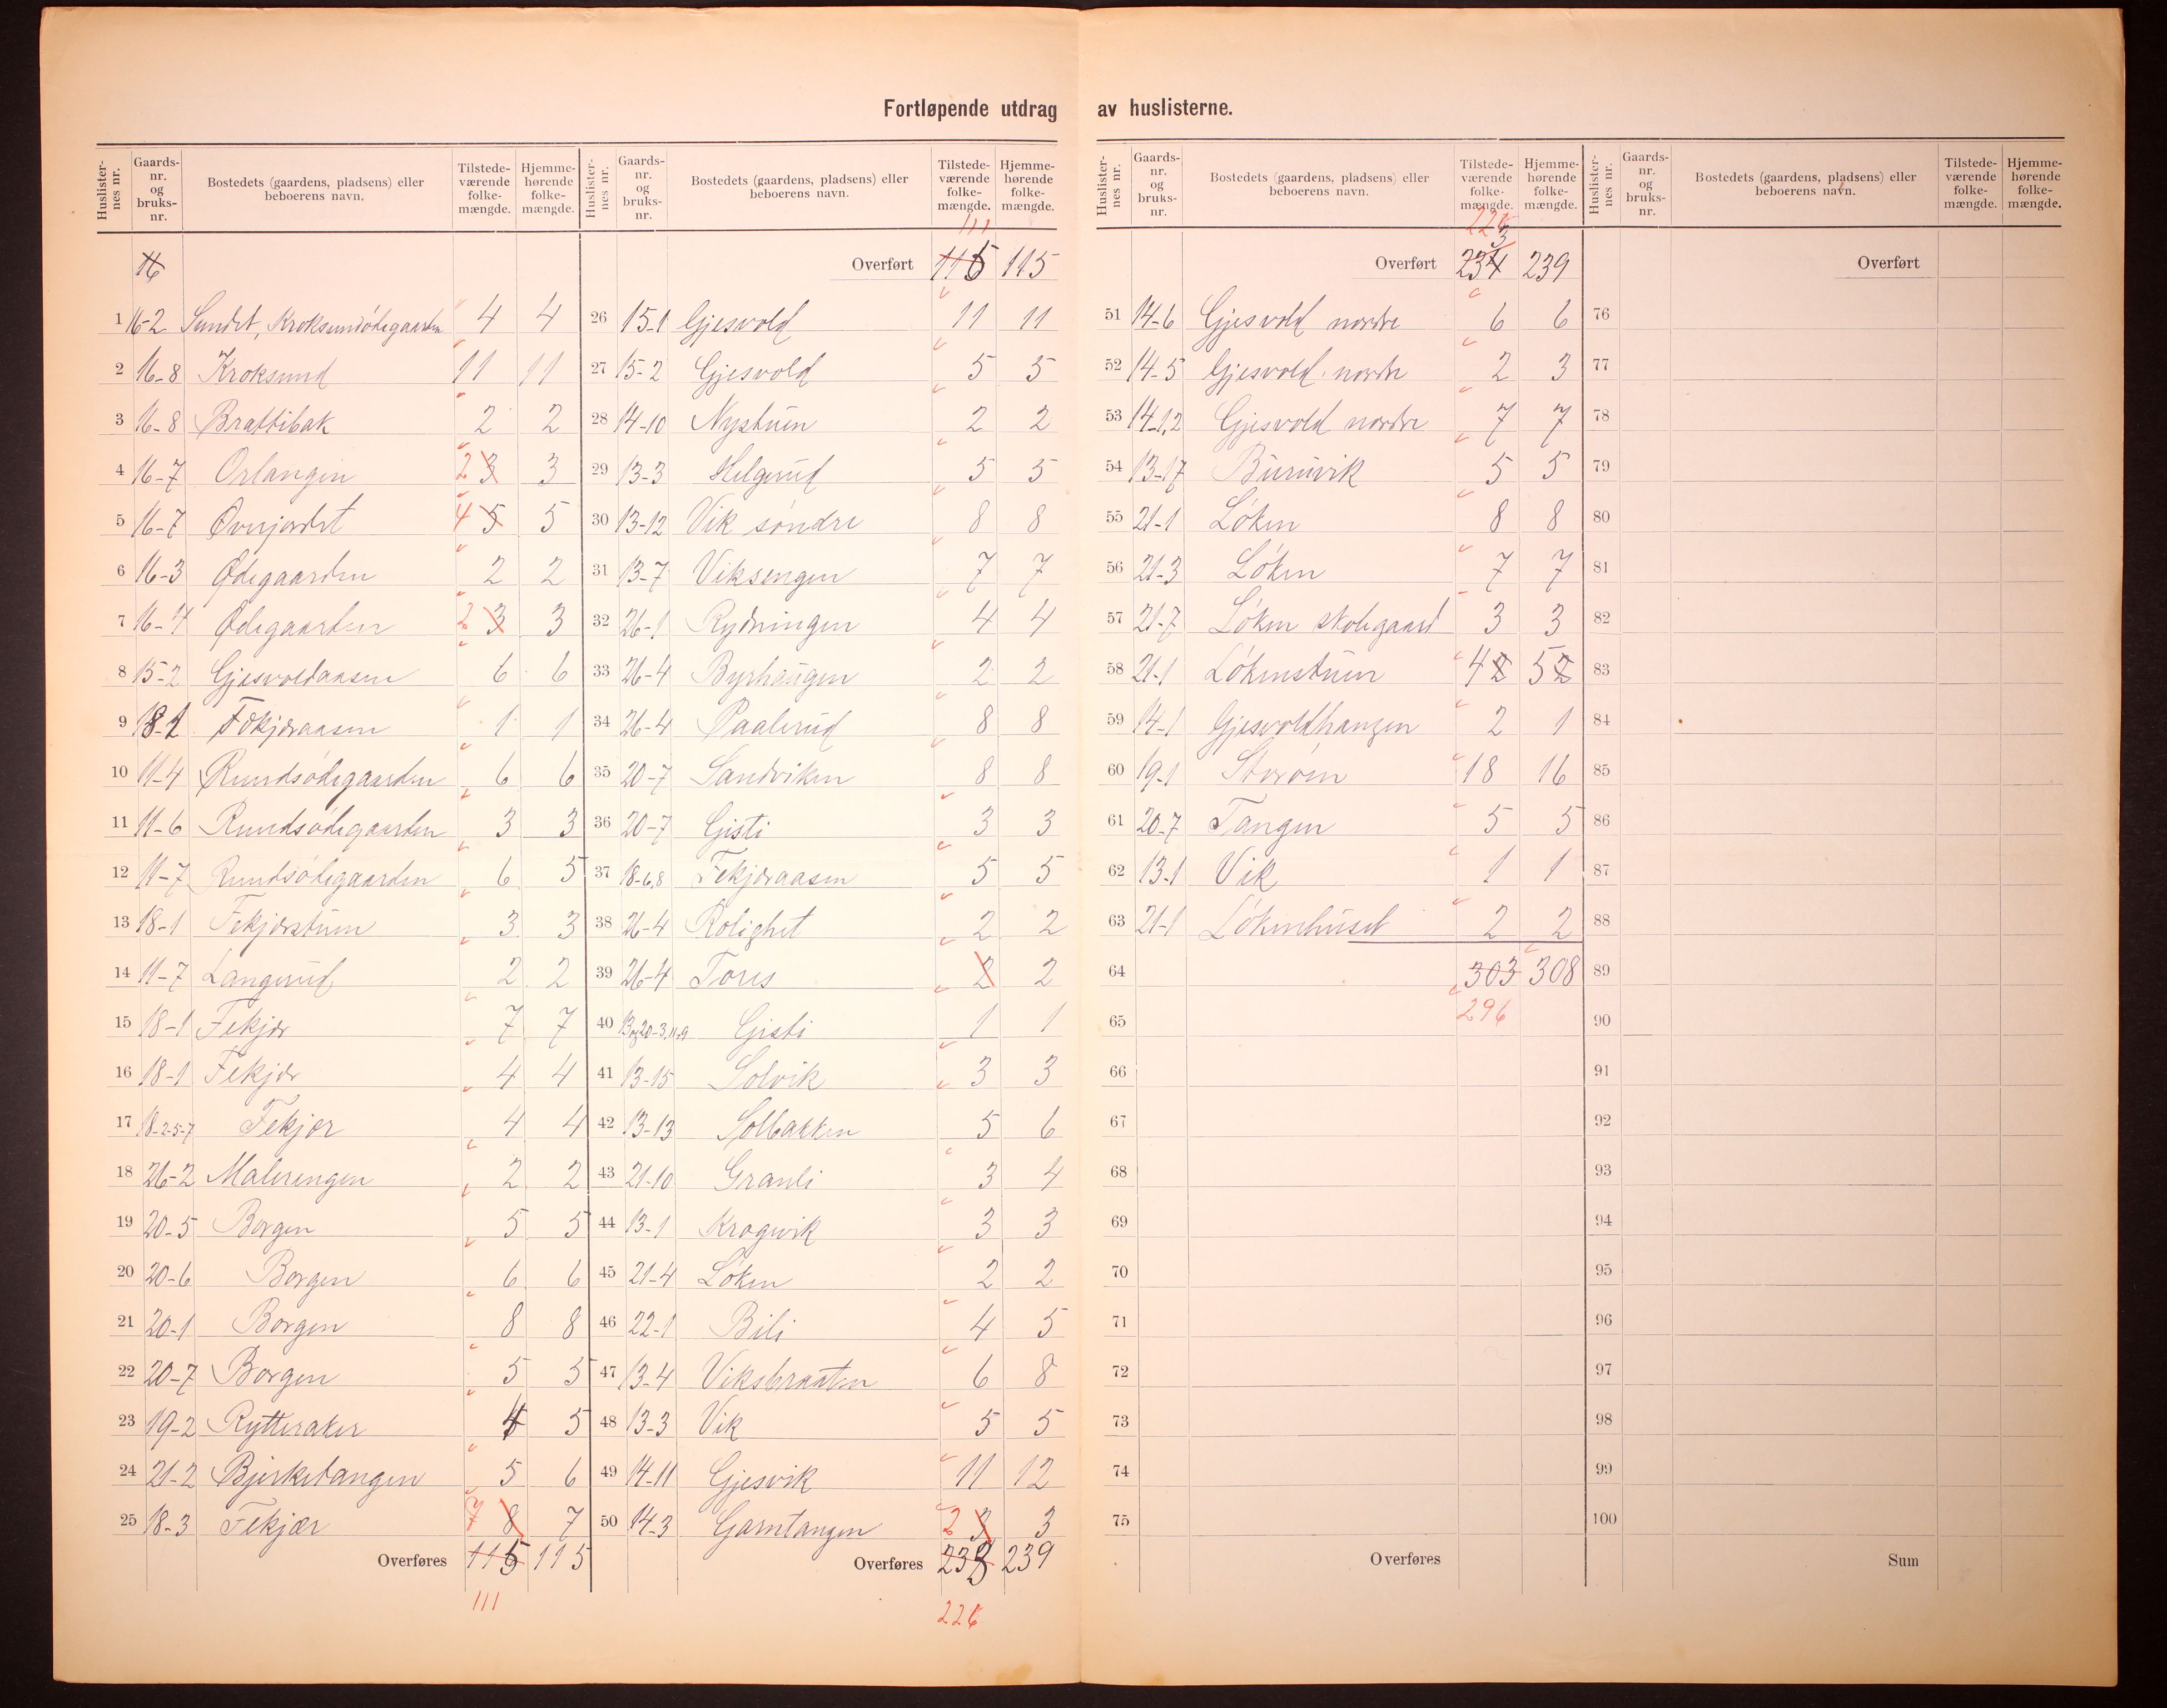 Fortløpende utdrag av huslisterne.
Huslister-nes nr. Gaards-nr. og bruks-nr. Bostedets (gaardens, pladsens) eller beboerens navn. Tilstede-værende folke-mængde. Hjemme-hørende folke-mængde.
16
1 16-2 Sundet, Kroksundødegaarden 4 4
2 16-8 Kroksund 11 11
3 16-8 Brattibak 2 2
4 16-7 Orlangen 2 3 3
5 16-7 Øverjordet 4 5 5
6 16-3 Ødegaarden 2 2
7 16-4 Ødegaarden 2 3 3
8 15-2 Gjesvoldaasen 6 6
9 18-1 Fekjæraasen 1 1
10 11-4 Rundsødegaarden 6 6
11 11-6 Rundsødegaarden 3 3
12 11-7 Rundsødegaarden 6 5
13 18-1 Fekjærstuen 3 3
14 11-7 Langerud 2 2
15 18-1 Fekjær 7 7
16 18-1 Fekjær 4 4
17 18-2-5-7 Fekjær 4 4
18 26-2 Malerengen 2 2
19 20-5 Borgen 5 5
20 20-6 Borgen 6 6
21 20-1 Borgen 8 8
22 20-7 Borgen 5 5
23 19-2 Rytteraker 4 5
24 21-2 Bjerketangen 5 6
25 18-3 Fekjær 7 8 7
Overføres 115 115
111
Huslister-nes nr. Gaards-nr. og bruks-nr. Bostedets (gaardens, pladsens) eller beboerens navn. Tilstede-værende folke-mængde. Hjemme-hørende folke-mængde.
111
Overført 115 115
26 15-1 Gjesvold 11 11
27 15-2 Gjesvold 5 5
28 14-10 Nystuen 2 2
29 13-3 Helgerud 5 5
30 13-12 Vik søndre 8 8
31 13-7 Viksengen 7 7
32 26-1 Rydningen 4 4
33 26-4 Byrhaugen 2 2
34 26-4 Paalerud 8 8
35 20-7 Sandviken 8 8
36 20-7 Gisti 3 3
37 18-6,8 Fekjæraasen 5 5
38 26-4 Rolighet 2 2
39 26-4 Tores 2 2
40 Gisti 1 1
41 13-15 Solvik 3 3
42 13-13 Solbakken 5 6
43 21-10 Granli 3 4
44 13-1 Krogvik 3 3
45 21-4 Løken 2 2
46 22-1 Bili 4 5
47 13-4 Viksbraaten 6 8
48 13-3 Vik 5 5
49 14-11 Gjesvik 11 12
50 14-3 Garntangen 2 3 3
Overføres 238 239
226
Huslister-nes nr. Gaards-nr. og bruks-nr. Bostedets (gaardens, pladsens) eller beboerens navn. Tilstede-værende folke-mængde. Hjemme-hørende folke-mængde.
226
3
Overført 234 239
51 14-6 Gjesvold nordre 6 6
52 14-5 Gjesvold nordre 2 3
53 14-1,2 Gjesvold nordre 7 7
54 13-17 Buruvik 5 5
55 21-1 Løken 8 8
56 21-3 Løken 7 7
57 21-7 Løken skolegaard 3 3
58 21-1 Løkenstuen 4 2 5 2
59 14-1 Gjesvoldhaugen 2 1
60 19-1 Storøen 18 16
61 20-7 Tangen 5 5
62 13-1 Vik 1 1
63 21-1 Løkenhuset 2 2
64 303 308
65 296
66
67
68
69
70
71
72
73
74
75
Overføres
Huslister-nes nr. Gaards-nr. og bruks-nr. Bostedets (gaardens, pladsens) eller beboerens navn. Tilstede-værende folke-mængde. Hjemme-hørende folke-mængde.
Overført
76
77
78
79
80
81
82
83
84
85
86
87
88
89
90
91
92
93
94
95
96
97
98
99
100
Sum